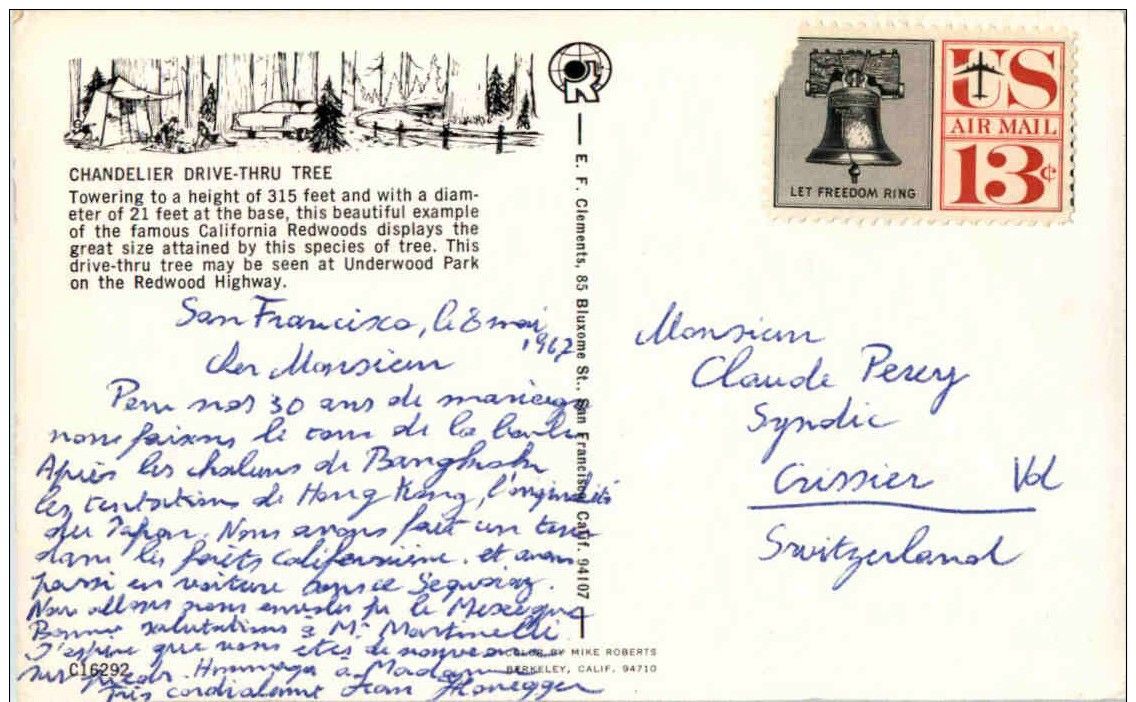 CHANDELIER DRIVE-THRU TREE
Towering to a height of 315 feet and with a diam-
eter of 21 feet at the base, this beautiful example
of the famous California Redwoods displays the
great size attained by this species of tree. This
drive-thru tree may be seen at Underwood Park
on the Redwood Highway.
San Francisco, le 8 mai
1967
Cher Monsieur
Pour nos 30 ans de mariage
nous faisons le tour de la boule
Après les chaleurs de Bangkok
les tentations de Hong Kong, l'originalité
du Japon. Nous avons fait un tour
dans les forêts californiennes et avons
passé en voiture sous ce Sequoia.
Nous allons nous envoler pr le Mexique
Bonnes salutations à Mr Martinelli.
J'espère que vous êtes de nouveau
sur pieds. Hommages à Madame
Très cordialement Jean Honegger
C16292
E. F. Clements, 85 Bluxome St., San Francisco, Calif. 94107
COLOR BY MIKE ROBERTS
BERKELEY, CALIF. 94710
LET FREEDOM RING
US
AIR MAIL
13¢
Monsieur
Claude Perey
Syndic
Crissier Vd
Switzerland